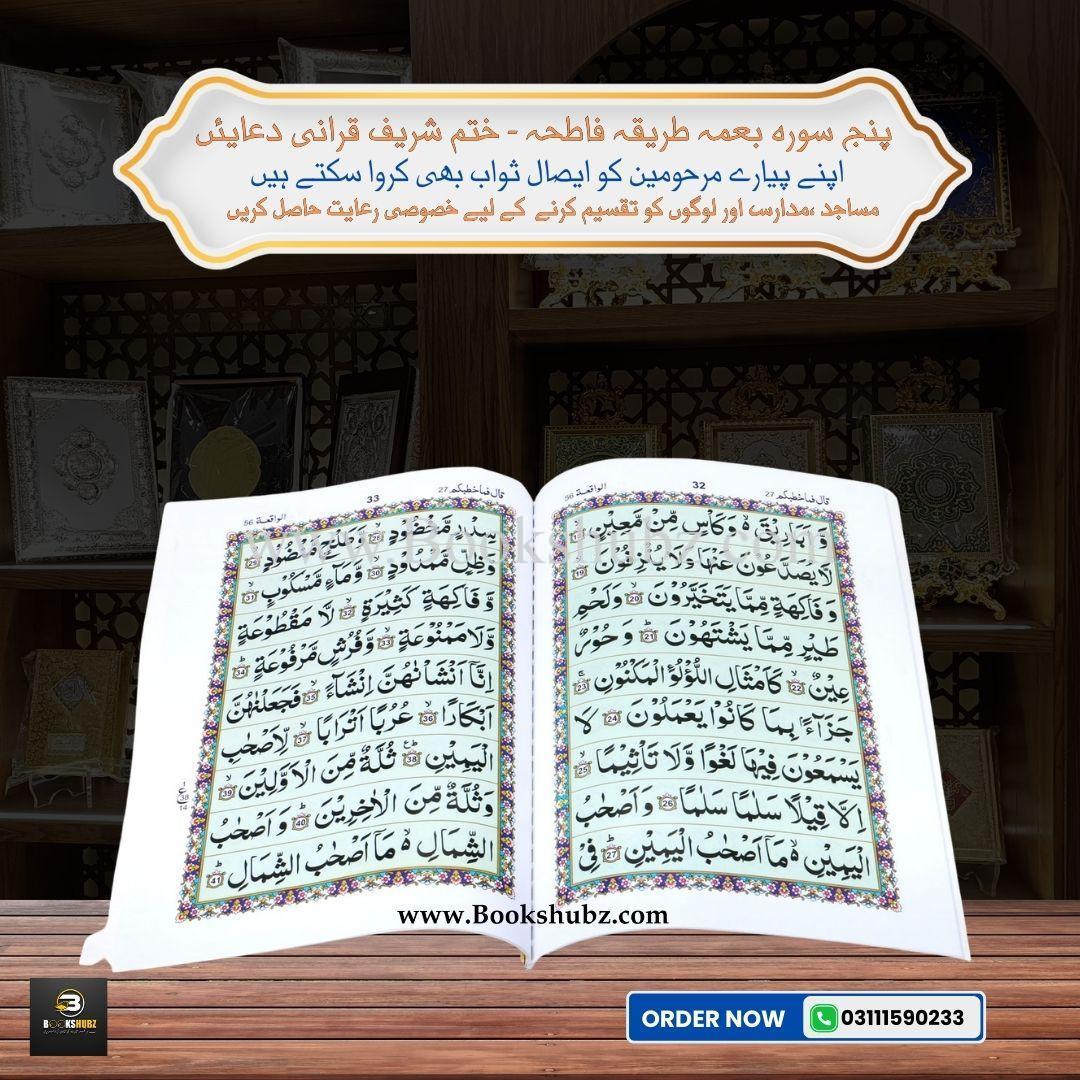 پنج سورہ بعمہ طریقہ فاطحہ - ختم شریف قرانی دعایئں
اپنے پیارے مرحومین کو ایصال ثواب بھی کروا سکتے ہیں
مساجد ،مدارس اور لوگوں کو تقسیم کرنے کے لیے خصوصی رعایت حاصل کریں
قال فماخطبكم 27
32
الواقعة 56
وَّ اَبَارِيْقَ ۙ۬ وَ كَاْسٍ مِّنْ مَّعِيْنٍ
لَّا يُصَدَّعُوْنَ عَنْهَا وَ لَا يُنْزِفُوْنَ ۙ 19
وَ فَاكِهَةٍ مِّمَّا يَتَخَيَّرُوْنَ ۙ 20 وَ لَحْمِ
طَيْرٍ مِّمَّا يَشْتَهُوْنَ ؕ 21 وَ حُوْرٌ
عِيْنٌ ۙ 22 كَاَمْثَالِ اللُّؤْلُؤِ الْمَكْنُوْنِ ۚ 23
جَزَآءًۢ بِمَا كَانُوْا يَعْمَلُوْنَ 24 لَا
يَسْمَعُوْنَ فِيْهَا لَغْوًا وَّ لَا تَاْثِيْمًا ۙ 25
اِلَّا قِيْلًا سَلٰمًا سَلٰمًا 26 وَ اَصْحٰبُ
الْيَمِيْنِ ۙ۬ مَاۤ اَصْحٰبُ الْيَمِيْنِ ؕ 27 فِيْ
قال فماخطبكم 27
33
الواقعة 56
سِدْرٍ مَّخْضُوْدٍ ۙ 28 وَّ طَلْحٍ مَّنْضُوْدٍ ۙ 29
وَّ ظِلٍّ مَّمْدُوْدٍ ۙ 30 وَّ مَآءٍ مَّسْكُوْبٍ ۙ 31
وَّ فَاكِهَةٍ كَثِيْرَةٍ ۙ 32 لَّا مَقْطُوْعَةٍ
وَّ لَا مَمْنُوْعَةٍ ۙ 33 وَّ فُرُشٍ مَّرْفُوْعَةٍ ؕ 34
اِنَّاۤ اَنْشَاْنٰهُنَّ اِنْشَآءً ۙ 35 فَجَعَلْنٰهُنَّ
اَبْكَارًا ۙ 36 عُرُبًا اَتْرَابًا ۙ 37 لِّاَصْحٰبِ
الْيَمِيْنِ ؕ 38 ثُلَّةٌ مِّنَ الْاَوَّلِيْنَ ۙ 39
وَ ثُلَّةٌ مِّنَ الْاٰخِرِيْنَ ؕ 40 وَ اَصْحٰبُ
الشِّمَالِ ۙ۬ مَاۤ اَصْحٰبُ الشِّمَالِ ؕ 41
ع
38
14
www.Bookshubz.com
www.Bookshubz.com
BOOKSHUBZ
ORDER NOW
03111590233